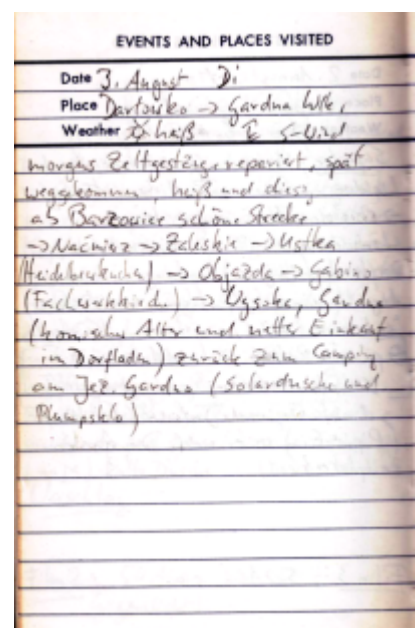 EVENTS AND PLACES VISITED
Date 3. August Di
Place Darłówko -> Gardna
Weather heiß S-Wind
morgens Zeltgestänge repariert, spät
weggekommen, heiß und diesig
ab Barzowice schöne Strecke
-> Naćmierz -> Zaleskie -> Ustka
(Heidelbeerkuchen) -> Objazda -> Gabino
(Fachwerkkirche) -> Wysoka, Gardna
(komischer Alter und netter Einkauf
im Dorfladen) zurück zum Camping
am Jez. Gardno (Solardusche und
Plumpsklo)